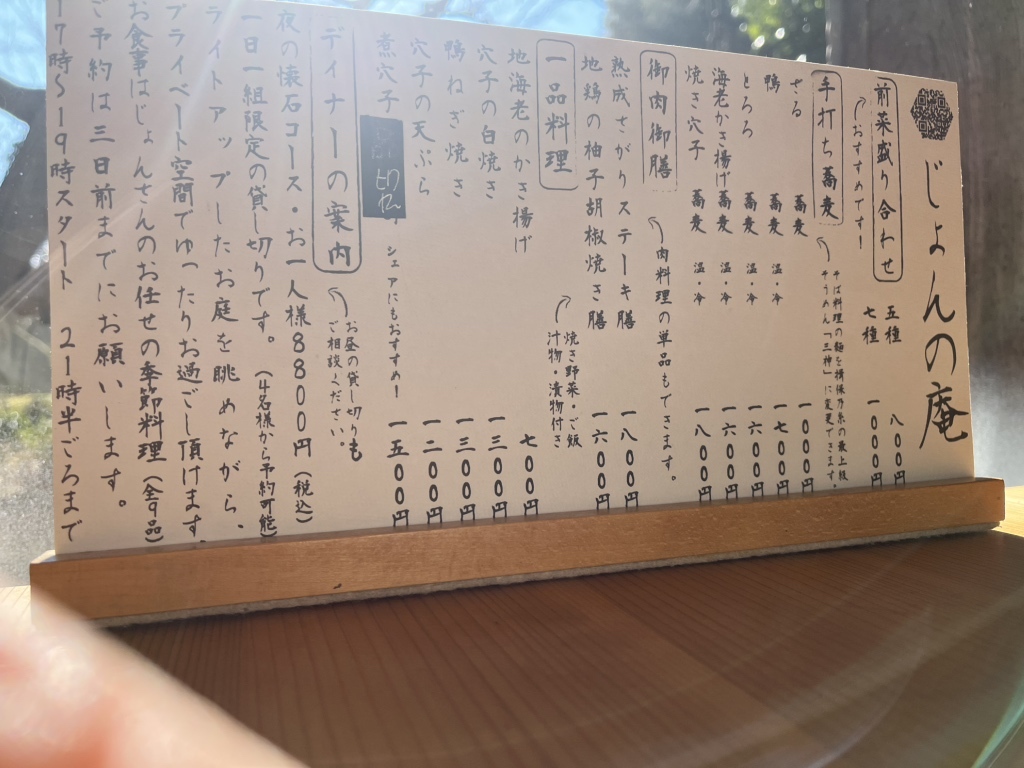 じょんの庵
前菜盛り合わせ
おすすめです!
五種 八〇〇円
七種 一〇〇〇円
手打ち蕎麦
そば料理の麺を揖保乃糸の最上級
そうめん「三神」に変更できます。
ざる 蕎麦 一〇〇〇円
鴨 蕎麦 温・冷 一七〇〇円
とろろ 蕎麦 温・冷 一六〇〇円
海老かき揚げ 蕎麦 温・冷 一六〇〇円
焼き穴子 蕎麦 温・冷 一八〇〇円
御肉御膳
肉料理の単品もできます。
熟成さがりステーキ膳 一八〇〇円
地鶏の柚子胡椒焼き膳 一六〇〇円
焼き野菜・ご飯
汁物・漬物付き
一品料理
地海老のかき揚げ 七〇〇円
穴子の白焼き 一三〇〇円
鴨ねぎ焼き 一三〇〇円
穴子の天ぷら 一二〇〇円
煮穴子 シェアにもおすすめ! 一五〇〇円
ディナーの案内
お昼の貸し切りも
ご相談ください。
夜の懐石コース・お一人様8800円(税込)
一日一組限定の貸し切りです。(4名様から予約可能)
ライトアップしたお庭を眺めながら、
プライベート空間でゆったりお過ごし頂けます。
お食事はじょんさんのお任せの季節料理(全9品)
ご予約は三日前までにお願いします。
17時〜19時スタート 21時半ごろまで